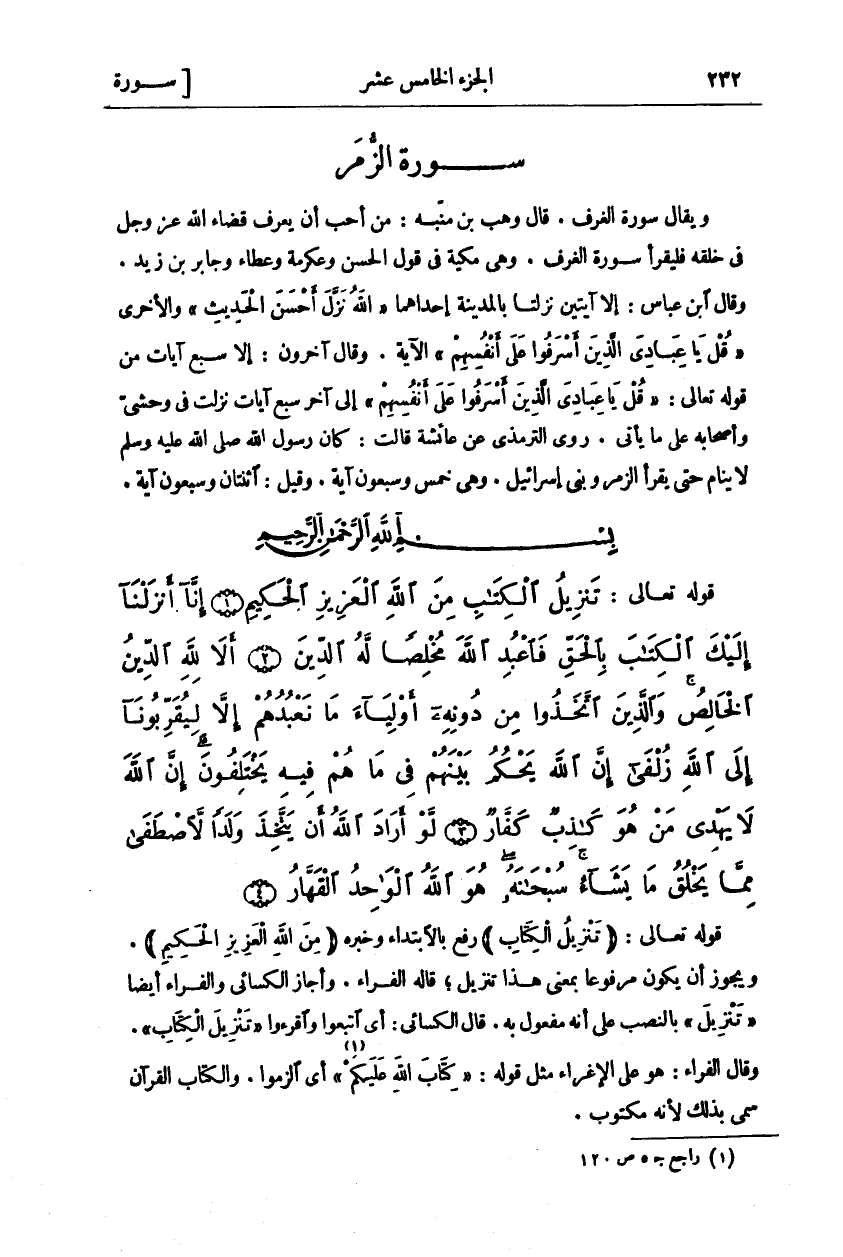 ٢٣٢ الجزء الخامس عشر [ ســورة
ســـورة الزُّمَر
ويقال سورة الغرف . قال وهب بن منبّـه : من أحب أن يعرف قضاء الله عز وجل
فى خلقه فليقرأ سـورة الغرف . وهى مكية فى قول الحسن وعكرمة وعطاء وجابر بن زيد .
وقال آبن عباس : إلا آيتين نزلتـا بالمدينة إحداهما « اللهُ نَزَّلَ أَحْسَنَ الْحَدِيثِ » والأخرى
« قُلْ يَا عِبَـادِىَ الَّذِينَ أَسْرَفُوا عَلَى أَنْفُسِهِمْ » الآية . وقال آخرون : إلا سـبع آيات من
قوله تعالى : « قُلْ يَا عِبَادِىَ الَّذِينَ أَسْرَفُوا عَلَى أَنْفُسِهِمْ » إلى آخر سبع آيات نزلت فى وحشىّ
وأصحابه على ما يأتى . روى الترمذى عن عائشة قالت : كان رسول الله صلى الله عليه وسلم
لا ينام حتى يقرأ الزمر و بنى إسرائيل . وهى خمس وسبعون آية . وقيل : آثنتان وسبعون آية .
بِسْـــمِ ٱللَّهِ ٱلرَّحْمَـٰنِ ٱلرَّحِيمِ
قوله تعـالى : تَنزِيلُ ٱلْكِتَـٰبِ مِنَ ٱللَّهِ ٱلْعَزِيزِ ٱلْحَكِيمِ ﴿١﴾ إِنَّآ أَنزَلْنَـآ
إِلَيْكَ ٱلْكِتَـٰبَ بِٱلْحَقِّ فَٱعْبُدِ ٱللَّهَ مُخْلِصًـا لَّهُ ٱلدِّينَ ﴿٢﴾ أَلَا لِلَّهِ ٱلدِّينُ
ٱلْخَالِصُ ۚ وَٱلَّذِينَ ٱتَّخَـذُوا مِن دُونِهِۦٓ أَوْلِيَـآءَ مَا نَعْبُدُهُمْ إِلَّا لِيُقَرِّبُونَـآ
إِلَى ٱللَّهِ زُلْفَىٰٓ إِنَّ ٱللَّهَ يَحْكُمُ بَيْنَهُمْ فِى مَا هُمْ فِيـهِ يَخْتَلِفُونَ ۗ إِنَّ ٱللَّهَ
لَا يَهْدِى مَنْ هُوَ كَـٰذِبٌ كَفَّارٌ ﴿٣﴾ لَّوْ أَرَادَ ٱللَّهُ أَن يَتَّخِذَ وَلَدًا لَّٱصْطَفَىٰ
مِمَّـا يَخْلُقُ مَا يَشَـآءُ ۚ سُبْحَـٰنَهُۥ ۖ هُوَ ٱللَّهُ ٱلْوَٰحِدُ ٱلْقَهَّارُ ﴿٤﴾
قوله تعـالى : ﴿ تَنْزِيلُ الْكِتَابِ ﴾ رفع بالآبتداء وخبره ﴿ مِنَ اللهِ الْعَزِيزِ الْحَـكِيمِ ﴾ .
ويجوز أن يكون مرفوعا بمعنى هـذا تنزيل ؛ قاله الفـراء . وأجاز الكسائى والفـراء أيضا
« تَنْزِيلَ » بالنصب على أنه مفعول به . قال الكسائى : أى آتبعوا وآقرءوا «تَنْزِيلَ الْكِتَابِ» .
وقال الفراء : هو على الإغراء مثل قوله : « كِتَابَ اللهِ عَلَيْكُمْ (١) » أى آلزموا . والكتاب القرآن
سمى بذلك لأنه مكتوب .
(١) راجع جـ ٥ ص ١٢٠